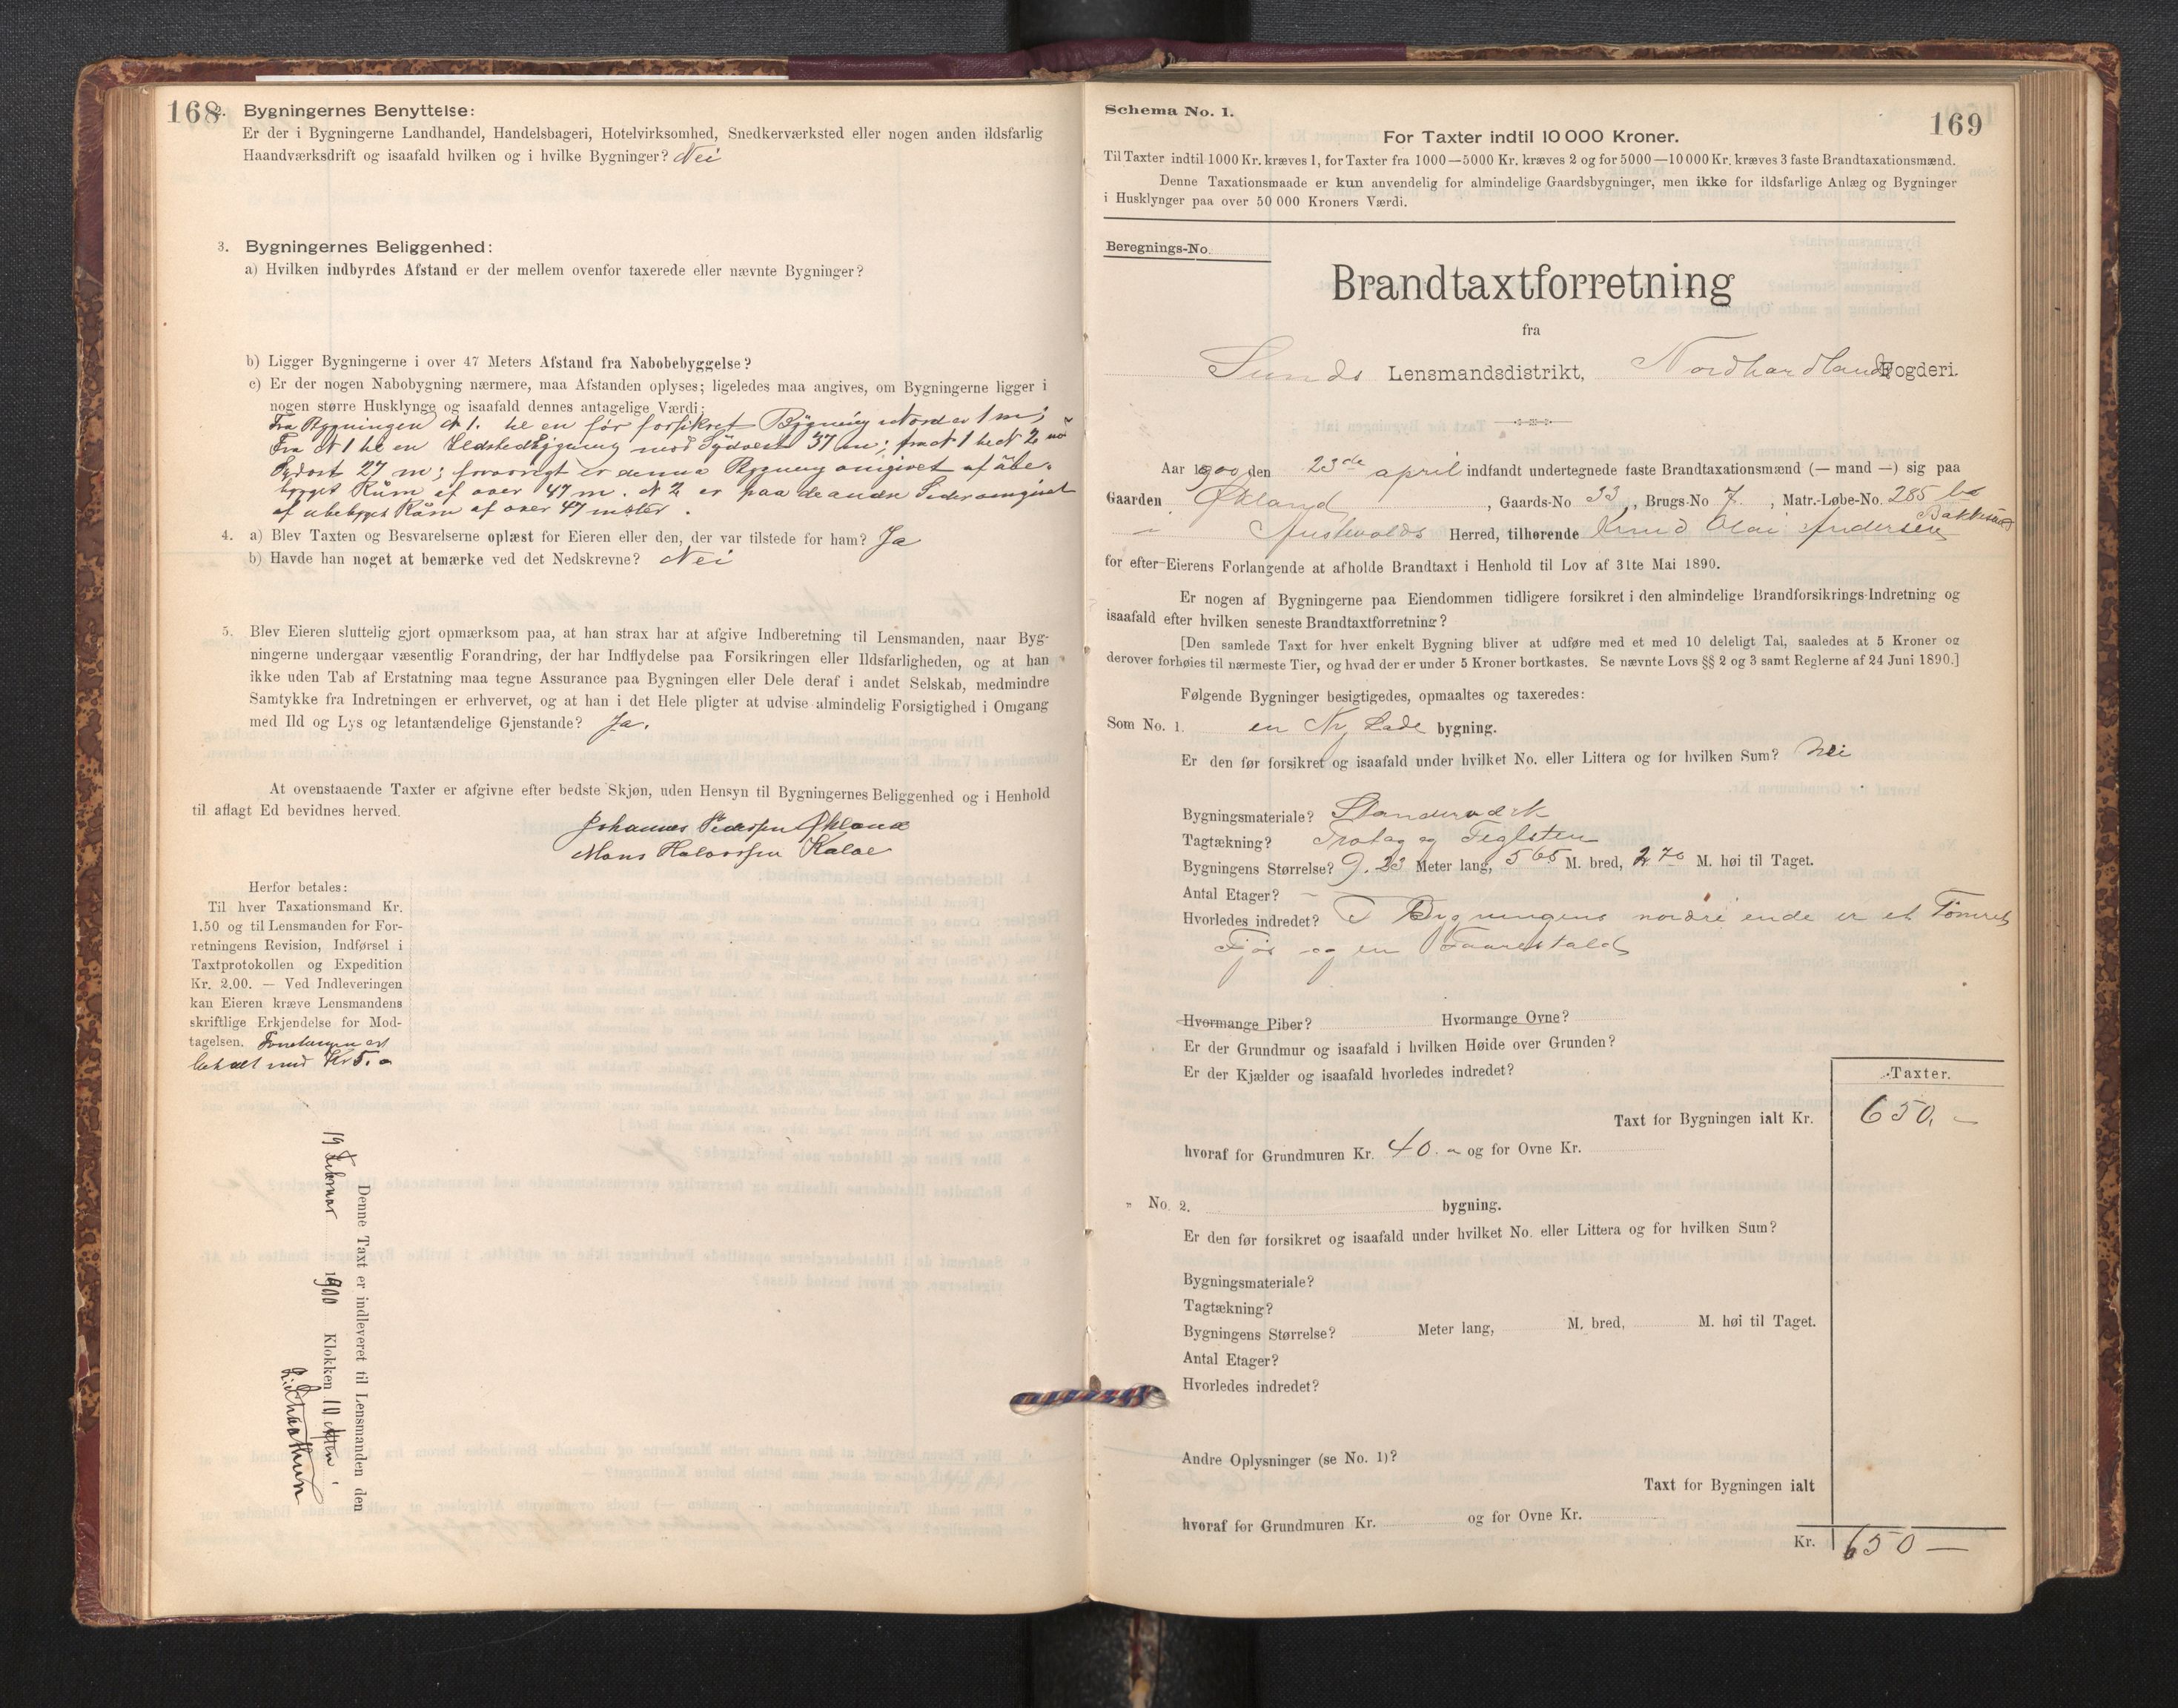 168
2. Bygningernes Benyttelse:
Er der i Bygningerne Landhandel, Handelsbageri, Hotelvirksomhed, Snedkerværksted eller nogen anden ildsfarlig
Haandværksdrift og isaafald hvilken og i hvilke Bygninger? Nei
3. Bygningernes Beliggenhed:
a) Hvilken indbyrdes Afstand er der mellem ovenfor taxerede eller nævnte Bygninger?
b) Ligger Bygningerne i over 47 Meters Afstand fra Nabobebyggelse?
c) Er der nogen Nabobygning nærmere, maa Afstanden oplyses; ligeledes maa angives, om Bygningerne ligger i
nogen større Husklynge og isaafald dennes antagelige Værdi:
Fra Bygningen N 1. til en før forsikret Bygning i Nord er 1 m;
Fra N 1 til en Ildstedbygning mod Sydvest 37 m; fra N 1 til N 2 mod
Sydost 27 m; forøvrigt er denne Bygning omgivet af ube-
bygget Rum af over 47 m. N 2 er paa de andre Sider omgivet
af ubebygget Rum af over 47 meter.
4. a) Blev Taxten og Besvarelserne oplæst for Eieren eller den, der var tilstede for ham? Ja
b) Havde han noget at bemærke ved det Nedskrevne? Nei
5. Blev Eieren sluttelig gjort opmærksom paa, at han strax har at afgive Indberetning til Lensmanden, naar Byg-
ningerne undergaar væsentlig Forandring, der har Indflydelse paa Forsikringen eller Ildsfarligheden, og at han
ikke uden Tab af Erstatning maa tegne Assurance paa Bygningen eller Dele deraf i andet Selskab, medmindre
Samtykke fra Indretningen er erhvervet, og at han i det Hele pligter at udvise almindelig Forsigtighed i Omgang
med Ild og Lys og letantændelige Gjenstande? Ja.
At ovenstaaende Taxter er afgivne efter bedste Skjøn, uden Hensyn til Bygningernes Beliggenhed og i Henhold
til aflagt Ed bevidnes herved.
Johannes Pederssen Økland
Mons Halvorssen Kaloe
Herfor betales:
Til hver Taxationsmand Kr.
1.50 og til Lensmanden for For-
retningens Revision, Indførsel i
Taxtprotokollen og Expedition
Kr. 2.00. — Ved Indleveringen
kan Eieren kræve Lensmandens
skriftlige Erkjendelse for Mod-
tagelsen. Forretningen er
betalt med Kr 5.
Denne Taxt er indleveret til Lensmanden den
19 Februar 1900 Klokken 10 Aften
Schema No. 1.
169
For Taxter indtil 10 000 Kroner.
Til Taxter indtil 1000 Kr. kræves 1, for Taxter fra 1000—5000 Kr. kræves 2 og for 5000—10 000 Kr. kræves 3 faste Brandtaxationsmænd.
Denne Taxationsmaade er kun anvendelig for almindelige Gaardsbygninger, men ikke for ildsfarlige Anlæg og Bygninger
i Husklynger paa over 50 000 Kroners Værdi.
Beregnings-No.
Brandtaxtforretning
fra
Sunds Lensmandsdistrikt, Nordhordlands Fogderi.
Aar 1900 den 23de april indfandt undertegnede faste Brandtaxationsmænd (— mand —) sig paa
Gaarden Økland, Gaards-No 33, Brugs-No 7, Matr.-Løbe-No. 285
i Austevolds Herred, tilhørende Knud Olai Andersen
for efter Eierens Forlangende at afholde Brandtaxt i Henhold til Lov af 31te Mai 1890.
Er nogen af Bygningerne paa Eiendommen tidligere forsikret i den almindelige Brandforsikrings-Indretning og
isaafald efter hvilken seneste Brandtaxtforretning?
[Den samlede Taxt for hver enkelt Bygning bliver at udføre med et med 10 deleligt Tal, saaledes at 5 Kroner og
derover forhøies til nærmeste Tier, og hvad der er under 5 Kroner bortkastes. Se nævnte Lovs §§ 2 og 3 samt Reglerne af 24 Juni 1890.]
Følgende Bygninger besigtigedes, opmaaltes og taxeredes:
Som No. 1. en Ny Lade bygning.
Er den før forsikret og isaafald under hvilket No. eller Littera og for hvilken Sum? Nei
Bygningsmateriale? Standerværk
Tagtækning? Trotag og Teglsten
Bygningens Størrelse? 9.23 Meter lang, 5 65 M. bred, 2 70 M. høi til Taget.
Antal Etager? -
Hvorledes indredet? I Bygningens nordre ende er et Tømret
Fjøs og en Faarestald
Hvormange Piber? Hvormange Ovne?
Er der Grundmur og isaafald i hvilken Høide over Grunden?
Er der Kjælder og isaafald hvorledes indredet?
Taxter.
Taxt for Bygningen ialt Kr. 650. —
hvoraf for Grundmuren Kr. 40. og for Ovne Kr.
„ No. 2. bygning.
Er den før forsikret og isaafald under hvilket No. eller Littera og for hvilken Sum?
Bygningsmateriale?
Tagtækning?
Bygningens Størrelse? Meter lang, M. bred, M. høi til Taget.
Antal Etager?
Hvorledes indredet?
Andre Oplysninger (se No. 1)?
Taxt for Bygningen ialt
hvoraf for Grundmuren Kr. og for Ovne Kr.
Kr. 650 —